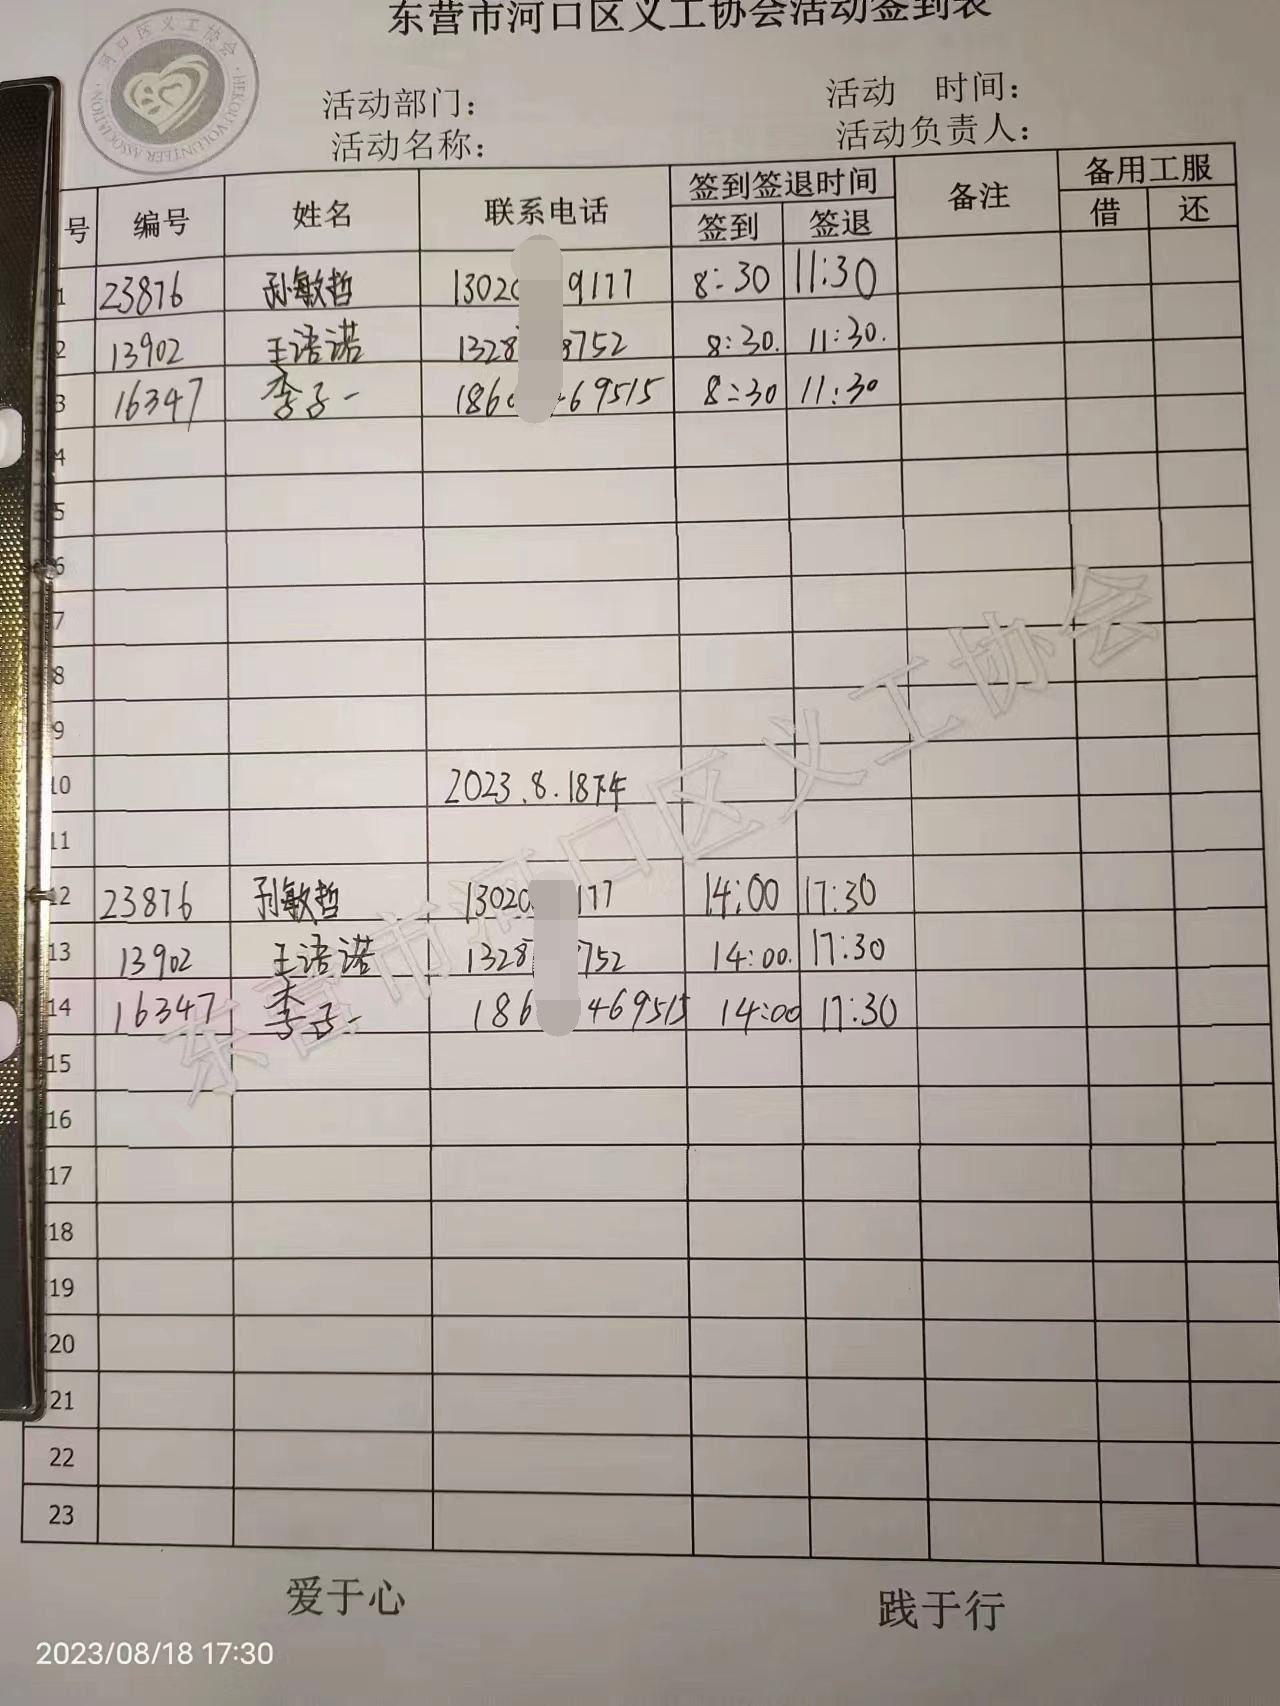 东营市河口区义工协会活动签到表
河口区义工协会
HEKOU VOLUNTEER ASSOCIATION
活动部门： 活动 时间：
活动名称： 活动负责人：
号 编号 姓名 联系电话 签到签退时间 备注 备用工服
签到 签退 借 还
1 23876 孙敏哲 1302 9177 8:30 11:30
2 13902 王语诺 1328 8752 8:30. 11:30.
3 16347 李子一 186 469515 8:30 11:30
4
5
6
7
8
9
10 2023.8.18下午
11
12 23876 孙敏哲 13020 177 14:00 17:30
13 13902 王语诺 1328 752 14:00. 17:30
14 16347 李子一 186 469515 14:00 17:30
15
16
17
18
19
20
21
22
23
东营市河口区义工协会
爱于心 践于行
2023/08/18 17:30